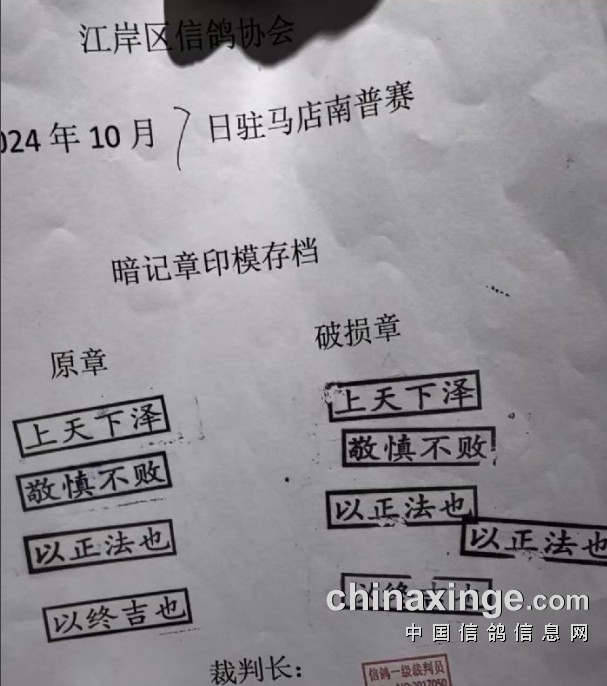 江岸区信鸽协会
024年10月7日驻马店南普赛
暗记章印模存档
原章
破损章
上天下泽
上天下泽
敬慎不败
敬慎不败
以正法也
以正法也
以正法也
以终吉也
chinaxinge.com
中国信鸽信息网
裁判长:
信鸽一级裁判员